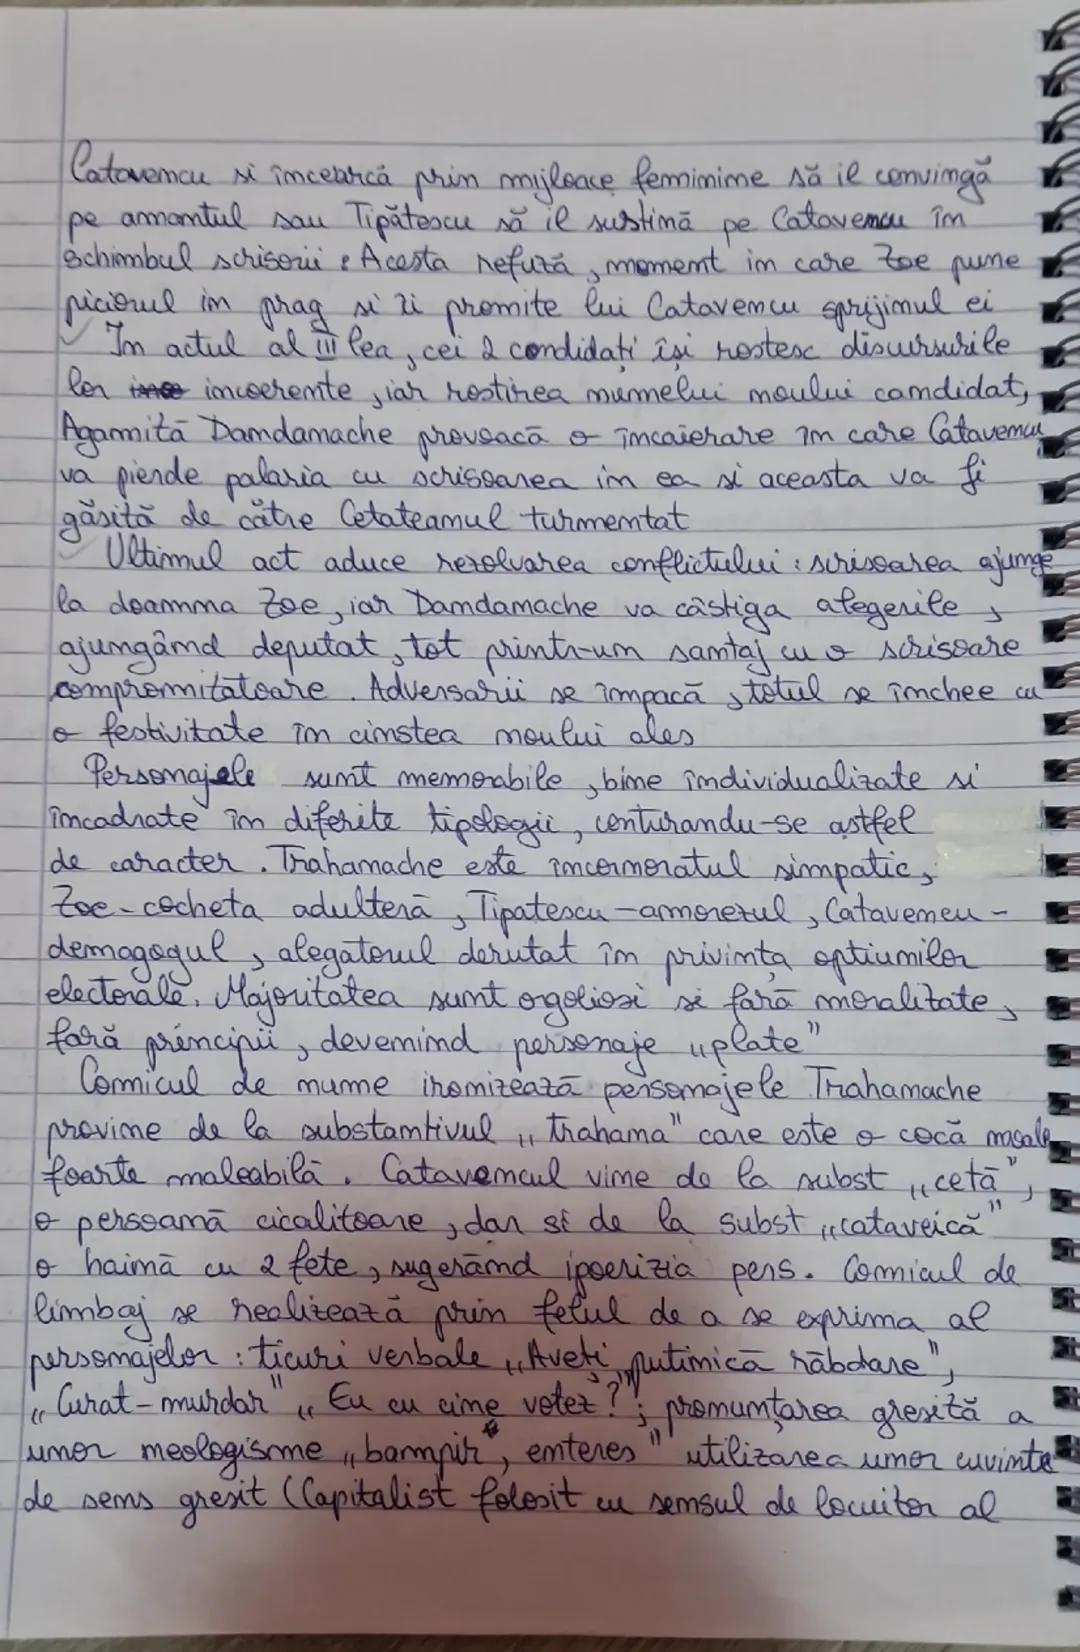 Catavencu si încearcă prin mijloace feminine să il convingă
pe amantul sau Tipătescu să il sustină pe Catavencu în
schimbul scrisorii. Acesta refuză, moment in care Zoe pune
piciorul in prag si îi promite lui Catavencu sprijinul ei
In actul al III lea, cei 2 candidați își rostesc discursurile
lor incoerente, iar rostirea numelui noului candidat,
Agamită Dandamache provoacă o încaierare în care Catavencu
va pierde palaria cu scrisoarea in ea si aceasta va fi
găsită de către Cetateanul turmentat
Ultimul act aduce rezolvarea conflictului: scrisoarea ajunge
la doamna Zoe, iar Dandamache va câstiga alegerile,
ajungând deputat, tot printr-un santaj cu o scrisoare
compromitatoare. Adversarii se împacă, totul se încheie cu
o festivitate în cinstea noului ales
Personajele sunt memorabile, bine individualizate si
încadrate în diferite tipologii, conturandu-se astfel
de caracter. Trahanache este incornoratul simpatic,
Zoe-cocheta adulteră, Tipatescu-amorezul, Catavencu-
demagogul, alegatorul derutat în privința optiunilor
electorale. Majoritatea sunt orgoliosi si fară moralitate,
fară principii, devenind personaje „plate"
Comicul de nume ironizează personajele Trahanache
provine de la substantivul „trahana" care este o cocă moale
foarte maleabilă. Catavencul vine de la subst „cată",
o persoană cicalitoare, dar si de la subst „cataveică"
o haină cu 2 fete, sugerând ipocrizia pers. Comicul de
limbaj se realizează prin felul de a se exprima al
personajelor: ticuri verbale „Aveți putinică răbdare",
„Curat-murdar" „Eu cu cine votez?"; pronunțarea gresită a
unor neologisme „bampir, enteres" utilizarea unor cuvinte
de sens gresit (Capitalist folosit cu sensul de locuitor al